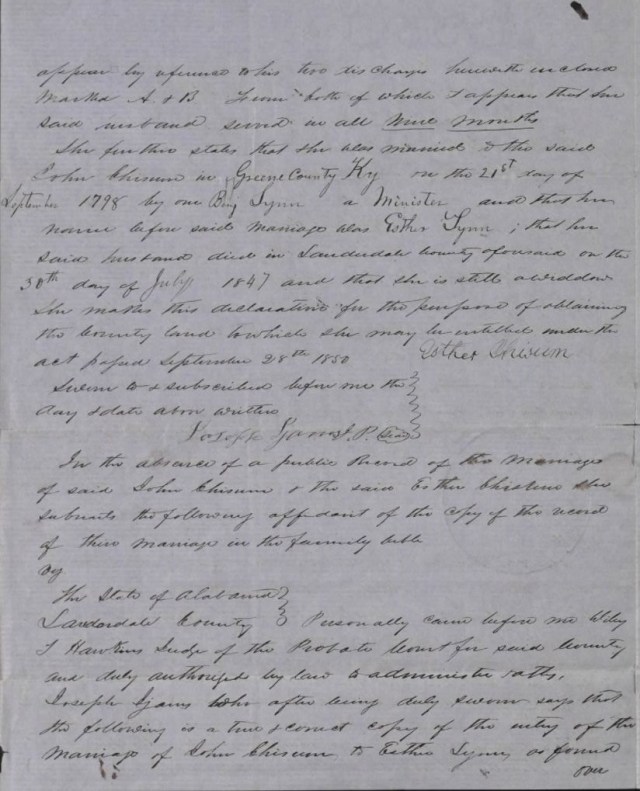 appear by reference to his two discharges herewith inclosed
Marked A & B From both of which it appears that her
said husband served in all Nine Months
She further states that she was married to the said
John Chisum in Greene County Ky on the 21st day of
September 1798 by one Benj Lynn a Minister and that her
name before said marriage was Esther Lynn ; that her
said husband died in Lauderdale County aforesaid on the
30th day of July 1847 and that she is still a widdow
She makes this declaration for the purpose of obtaining
the bounty land to which she may be entitled under the
act passed September 28th 1850 Esther Chisum
Sworn to & subscribed before me the
day & date above written
Joseph J.P. (Seal)
In the absence of a public Record of the Marriage
of said John Chisum & the said Esther Chisum she
submits the following affidavit of the copy of the record
of there marriage in the family bible
viz
The State of Alabama
Lauderdale County Personally came before me Wiley
T Hawkins Judge of the Probate Court for said County
and duly authorized by law to administer oaths,
Joseph who after being duly sworn says that
the following is a true & correct copy of the entry of the
Marriage of John Chisum to Esther Lynn, as found
over